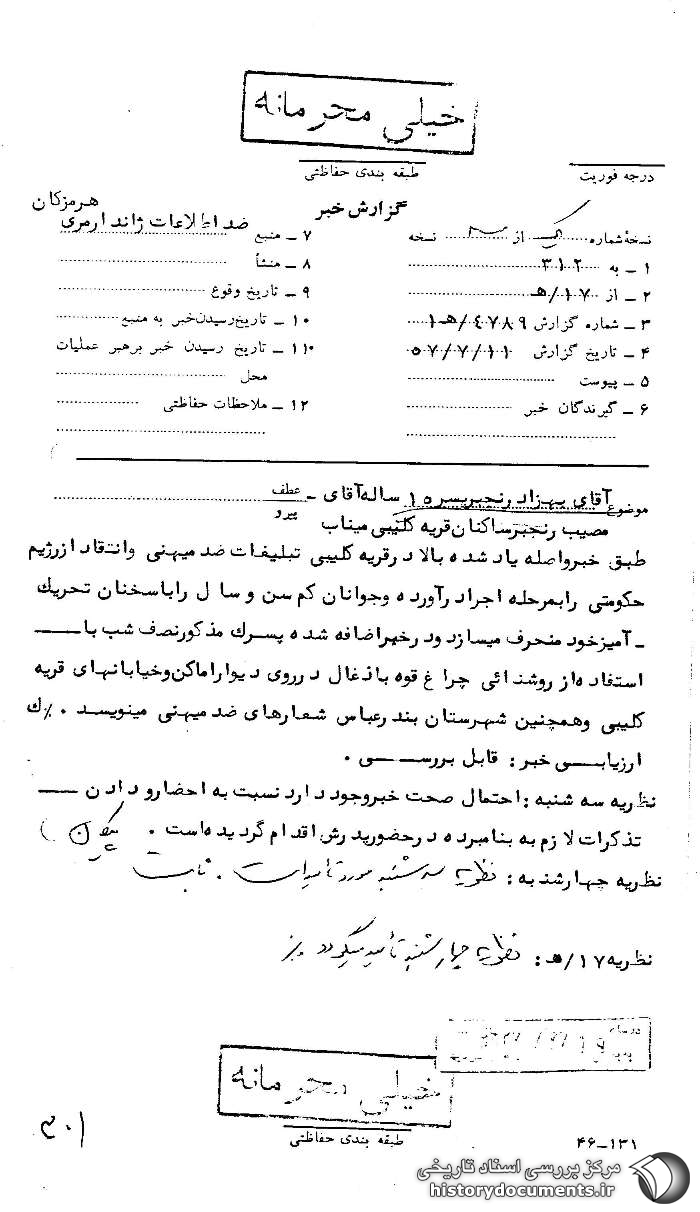 خیلی محرمانه
درجه فوریت
طبقه بندی حفاظتی
گزارش خبر
نسخهٔ شماره یک از نسخه
۱ ـ به ۳۱۲
۲ ـ از ۱۷/هـ
۳ ـ شماره گزارش ۴۷۸۹/هـ۱
۴ ـ تاریخ گزارش ۵۷/۷/۱۱
۵ ـ پیوست
۶ ـ گیرندگان خبر
۷ ـ منبع ضد اطلاعات ژاندارمری هرمزکان
۸ ـ منشأ
۹ ـ تاریخ وقوع
۱۰ ـ تاریخ رسیدن خبر به منبع
۱۱ ـ تاریخ رسیدن خبر برهبر عملیات
محل
۱۲ ـ ملاحظات حفاظتی
موضوع آقای بهزاد رنجبر پسر ۱۵ ساله آقای ـ عطف
پیرو
مصیب رنجبر ساکنان قریه کلیبی میناب
طبق خبر واصله یاد شده بالا در قریه کلیبی تبلیغات ضد میهنی وانتقاد از رژیم
حکومتی را بمرحله اجرا درآورده وجوانان کم سن و سال را باسخنان تحریك
ـ آمیز خود منحرف میسازد ودر خبر اضافه شده پسرك مذکور نصف شب با ـــ
استفاده از روشنائی چراغ قوه باذغال در روی دیوار اماکن وخیابانهای قریه
کلیبی وهمچنین شهرستان بندرعباس شعارهای ضد میهنی مینویسد . /ك
ارزیابـــی خبر : قابل بررســـی .
نظریه سه شنبه : احتمال صحت خبر وجود دارد نسبت به احضار و دادن ـــ
تذکرات لازم به بنامبرده در حضور پدرش اقدام گردیده است .
نظریه چهارشنبه : نظریه سه شنبه مورد تأیید است . ثابت
نظریه ۱۷/هـ : نظریه چهارشنبه تأیید میگردد
خیلی محرمانه
طبقه بندی حفاظتی
۴۶-۱۳۱
مرکز بررسی اسناد تاریخی
historydocuments.ir